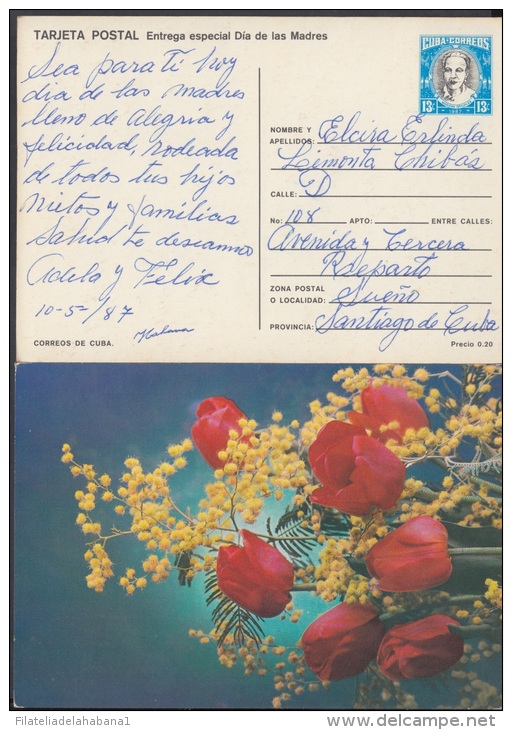 TARJETA POSTAL Entrega especial Día de las Madres
CUBA·CORREOS
13c 13c
1987
Sea para ti hoy
dia de las madres
lleno de alegria y
felicidad, rodeada
de todos tus hijos
Nietos y familias
Salud te deseamos
Adela y Felix
10-5-/87
Habana
CORREOS DE CUBA.
NOMBRE Y
APELLIDOS: Elcira Erlinda
Lemonta Chibás
CALLE: D
No: 108 APTO: ENTRE CALLES:
Avenida y Tercera
Reparto
ZONA POSTAL
O LOCALIDAD: Sueño
PROVINCIA: Santiago de Cuba
Precio 0.20
Filateliadelahabana1
http://www.delcampe.net